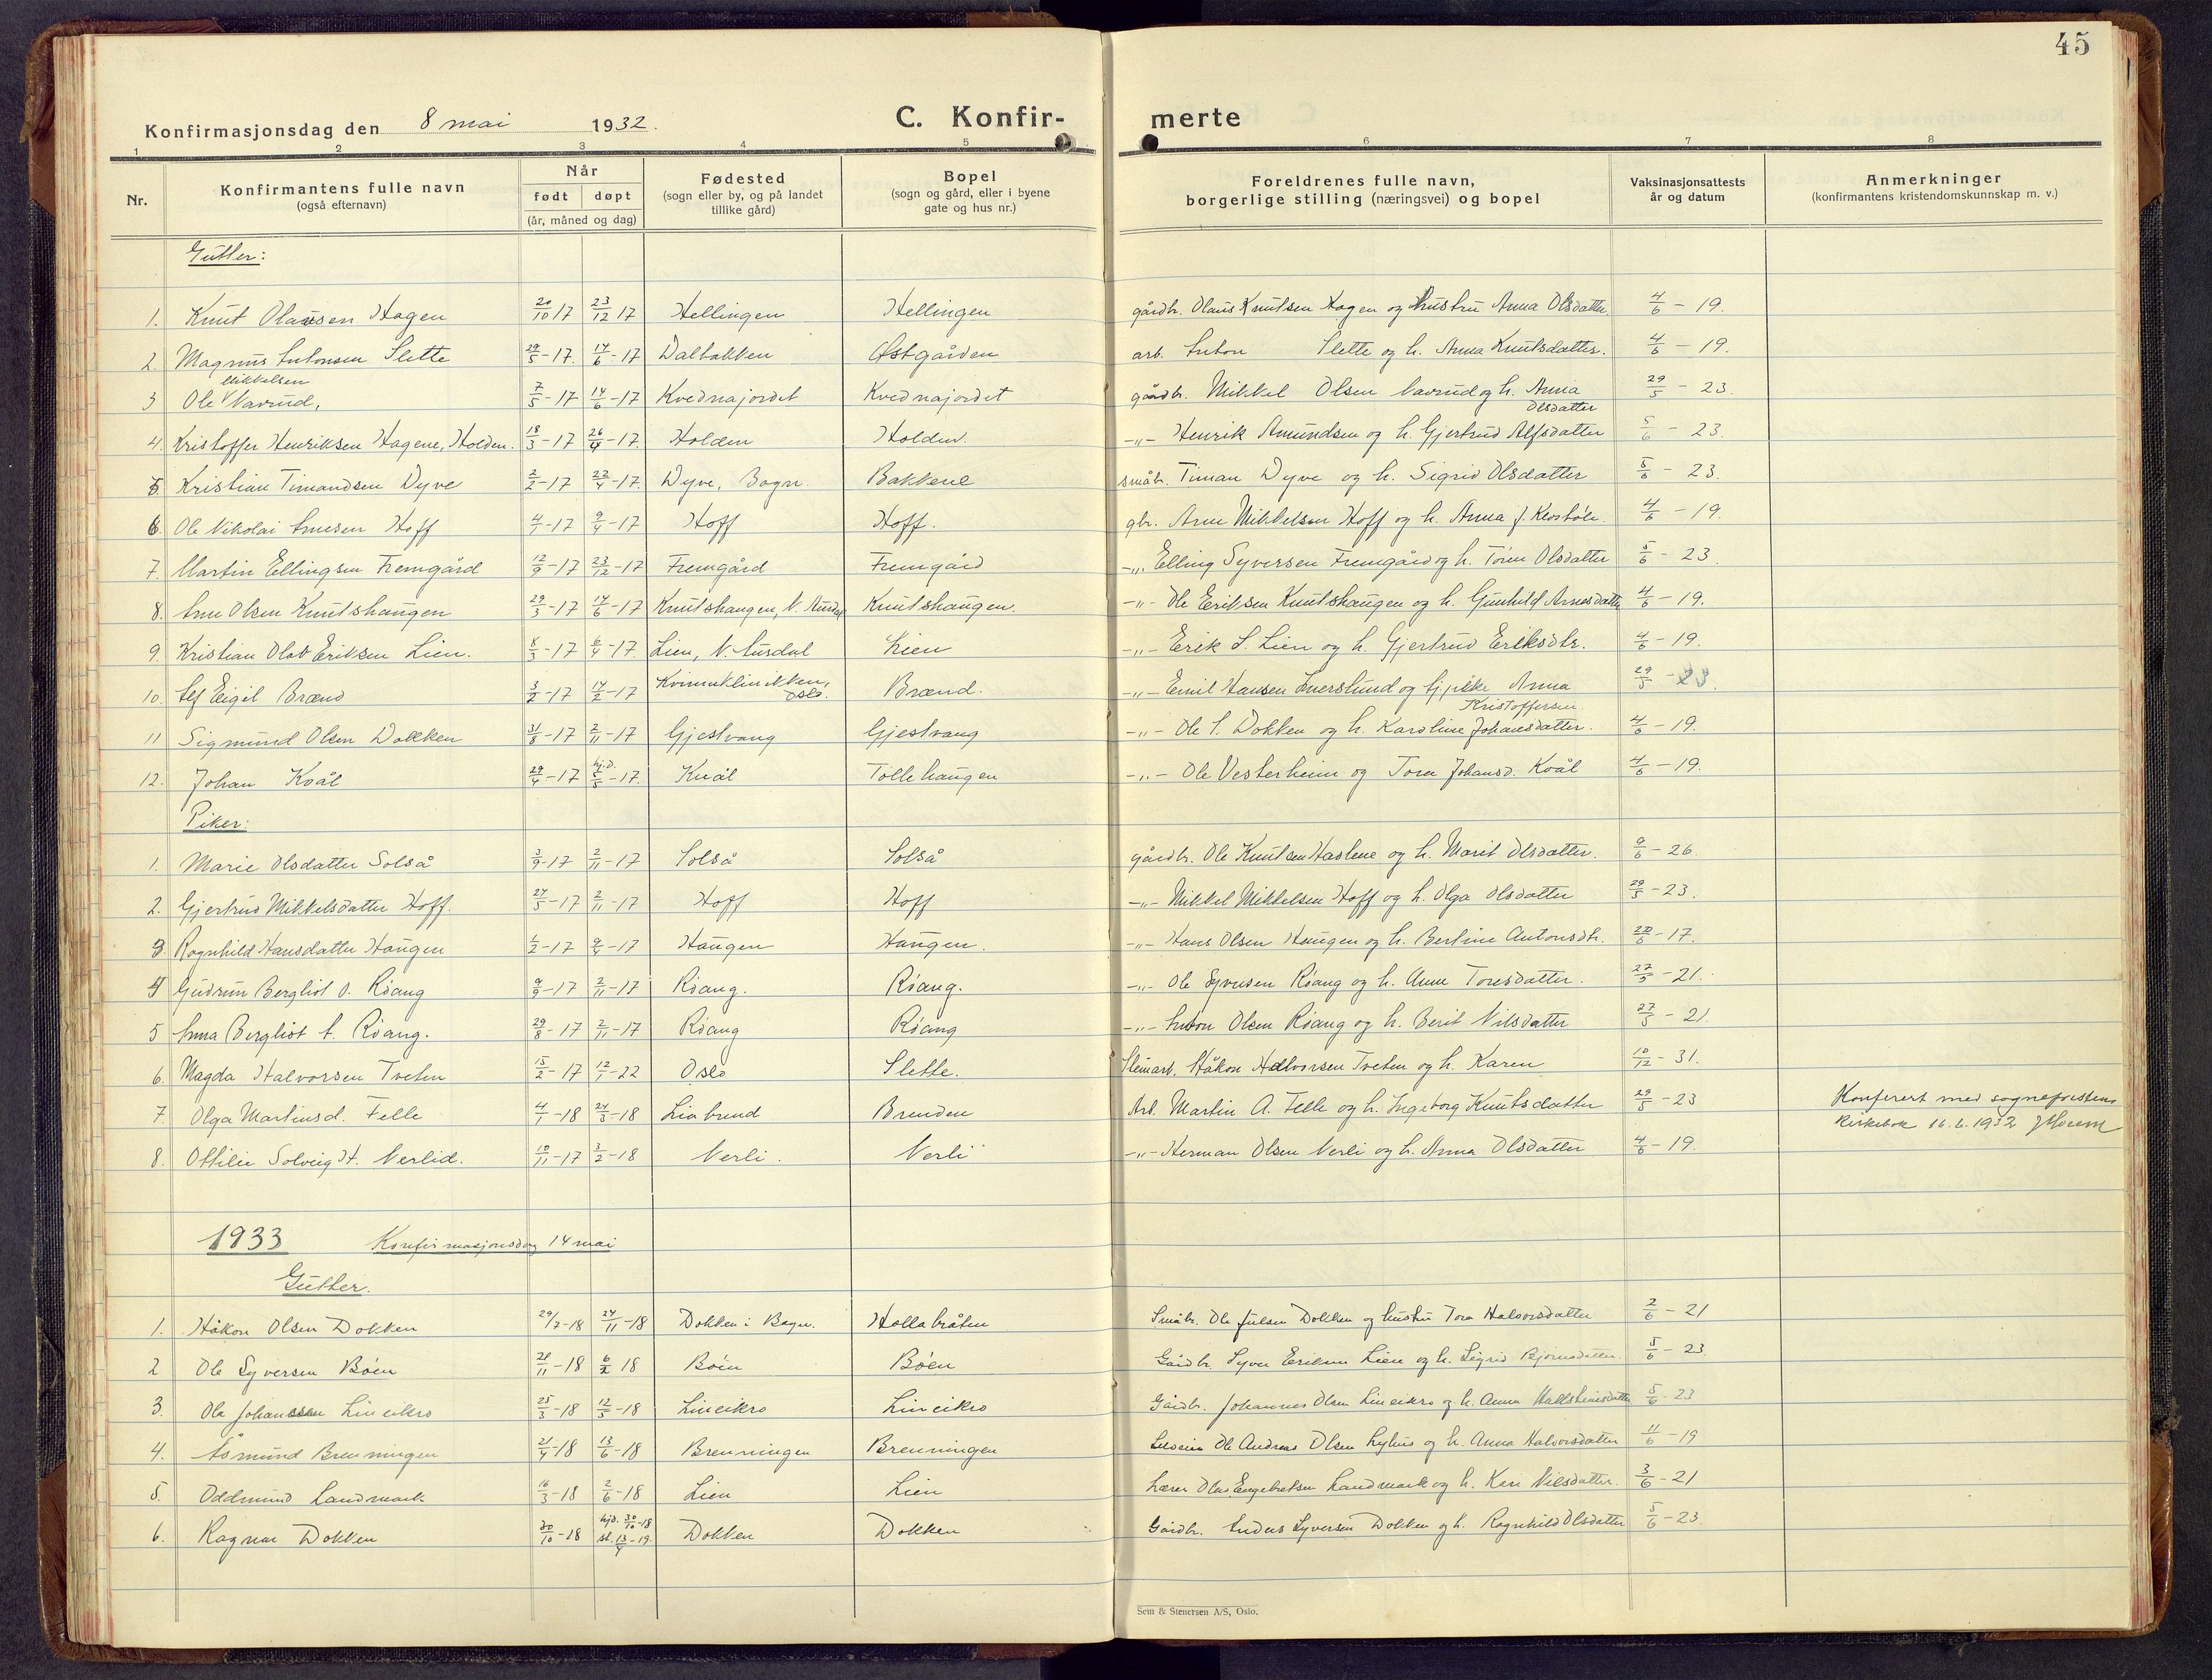 45
Konfirmasjonsdag den 8 mai 1932. C. Konfir- merte
1 2 3 4 5 6 7 8
Nr. Konfirmantens fulle navn (også efternavn) Når født døpt (år, måned og dag) Fødested (sogn eller by, og på landet tillike gård) Bopel (sogn og gård, eller i byene gate og hus nr.) Foreldrenes fulle navn, borgerlige stilling (næringsvei) og bopel Vaksinasjonsattests år og datum Anmerkninger (konfirmantens kristendomskunnskap m. v.)
Gutter:
1. Knut Olausen Hagen 20/10 17 23/12 17 Hellingen Hellingen gårdbr. Olaus Knutsen Hagen og hustru Anna Olsdatter 4/6 - 19.
2. Magnus Antonsen Slette 29/5-17. 17/6-17 Dalbakken Østgården arb. Anton Slette og h. Anna Knutsdatter. 4/6 - 19.
3 Ole Mikkelsen Navrud, 7/5-17 17/6-17 Kvednajordet Kvednajordet gårdb. Mikkel Olsen Navrud og h. Anna Olsdatter 29/5 - 23.
4. Kristoffer Henriksen Hagene, Holden. 18/3-17 26/4-17. Holden Holden. -„- Henrik Amundsen og h. Gjertrud Alfsdatter 5/6 - 23.
5 Kristian Timandsen Dyve 2/2-17 22/4-17. Dyve, Bagn. Bakkene småb. Timan Dyve og h. Sigrid Olsdatter 5/6 - 23.
6. Ole Nikolai Arnesen Hoff 4/1-17 9/4-17 Hoff Hoff. gbr. Arne Mikkelsen Hoff og h. Anna f. 4/6 - 19.
7. Martin Ellingsen Fremgård 12/9-17 23/12-17 Fremgård Fremgård -„- Elling Syversen Fremgård og h. Tóra Olsdatter 5/6 - 23.
8. Arne Olsen Knutshaugen 29/3-17 17/6-17 Knutshaugen, N. Aurdal Knutshaugen. -„- Ole Eriksen Knutshaugen og h. Gunhild Arnesdatter 4/6 - 19.
9. Kristian Olav Eriksen Lien. 8/3-17 6/4-17. Lien, N. Aurdal Lien -„- Erik S. Lien og h. Gjertrud Eriksdtr. 4/6 - 19.
10. Alf Eigil Brænd 3/2-17 17/2-17 Kvinneklinikken, Oslo. Brænd. -„- Emil Hansen og Anna Kristoffersen 29/5 - 23.
11 Sigmund Olsen Dokken 31/8-17 2/11-17 Gjestvang Gjestvang -„- Ole S. Dokken og h. Karoline Johansdatter. 4/6 - 19.
12. Johan Kvål 29/4-17 hj.d. 5/5-17. Kvål Tollehaugen -„- Ole Vesterheim og Tora Johansd. Kvål 4/6 - 19.
Piker:
1. Marie Olsdatter Solså 3/9-17 2/11-17 Solså Solså gårdb. Ole Knutsen Haslene og h. Marit Olsdatter. 9/6 - 26.
2. Gjertrud Mikkelsdatter Hoff. 27/5-17 2/11-17 Hoff Hoff -„- Mikkel Mikkelsen Hoff og h. Olga Olsdatter 29/5 - 23.
3. Ragnhild Hansdatter Haugen 1/2-17 9/4-17 Haugen Haugen. -„- Hans Olsen Haugen og h. Bertine Antonsdtr. 22/6 - 17.
4 Gudrun Bergliot O. Róang 9/9-17 2/11-17 Róang. Róang. -„- Ole Syversen Róang og h. Anne Toresdatter. 27/5 - 21.
5 Anna Bergliot A. Róang. 29/8-17 2/11-17 Róang Róang -„- Anton Olsen Róang og h. Berit Nilsdatter 27/5 - 21.
6. Magda Halvorsen Tveten 15/2-17 12/1-22 Oslo Slette. Stenarb. Håkon Halvorsen Tveten og h. Karen 10/12 - 31.
7. Olga Martinsd. Felle 4/1-18 24/3-18 Liabrend Brenden Arb. Martin A. Felle og h. Ingeborg Knutsdatter 29/5 - 23 Konferert med sogneprestens
8. Ottilie Solveig H. Nerlid. 10/11-17 3/2-18 Nerli. Nerli -„- Herman Olsen Nerli og h. Anna Olsdatter 4/6 - 19. kirkebok 16.6.1932
1933 Konfirmasjonsdag 14 mai
Gutter.
1. Håkon Olsen Dokken 29/7-18 24/11-18 Dokken i Bagn. Hollabråten Småb. Ole Julsen Dokken og hustru Tora Halvorsdatter 2/6 - 21
2 Ole Syversen Bóen 21/11-18 6/2 18 Bóen Bóen Gårdb. Syver Eriksen Lien og h. Sigrid Bjórnsdatter 5/6 - 23.
3. Ole Johanssen Lineikro 25/3-18 12/5-18 Lineikro Lineikro Gårdb. Johannes Olsen Lineikro og h. Anna Hallsteinsdatter 5/6 - 23
4. Åsmund Brenningen 21/4-18 13/6-18 Brenningen Brenningen Ole Andreas Olsen Lyhus og h. Anna Halvorsdatter 11/6 - 19
5. Oddmund Landmark 16/3-18 2/6-18 Lien Lien Lærer Olav Engebretsen Landmark og h. Kari Nilsdatter. 3/6 - 21
6. Ragnar Dokken 20/10-18 hjd. 30/10-18 st. 13/4-19. Dokken Dokken Gårdb. Anders Syversen Dokken og h. Ragnhild Olsdatter 5/6 - 23.
Sem & Stenersen A/S, Oslo.